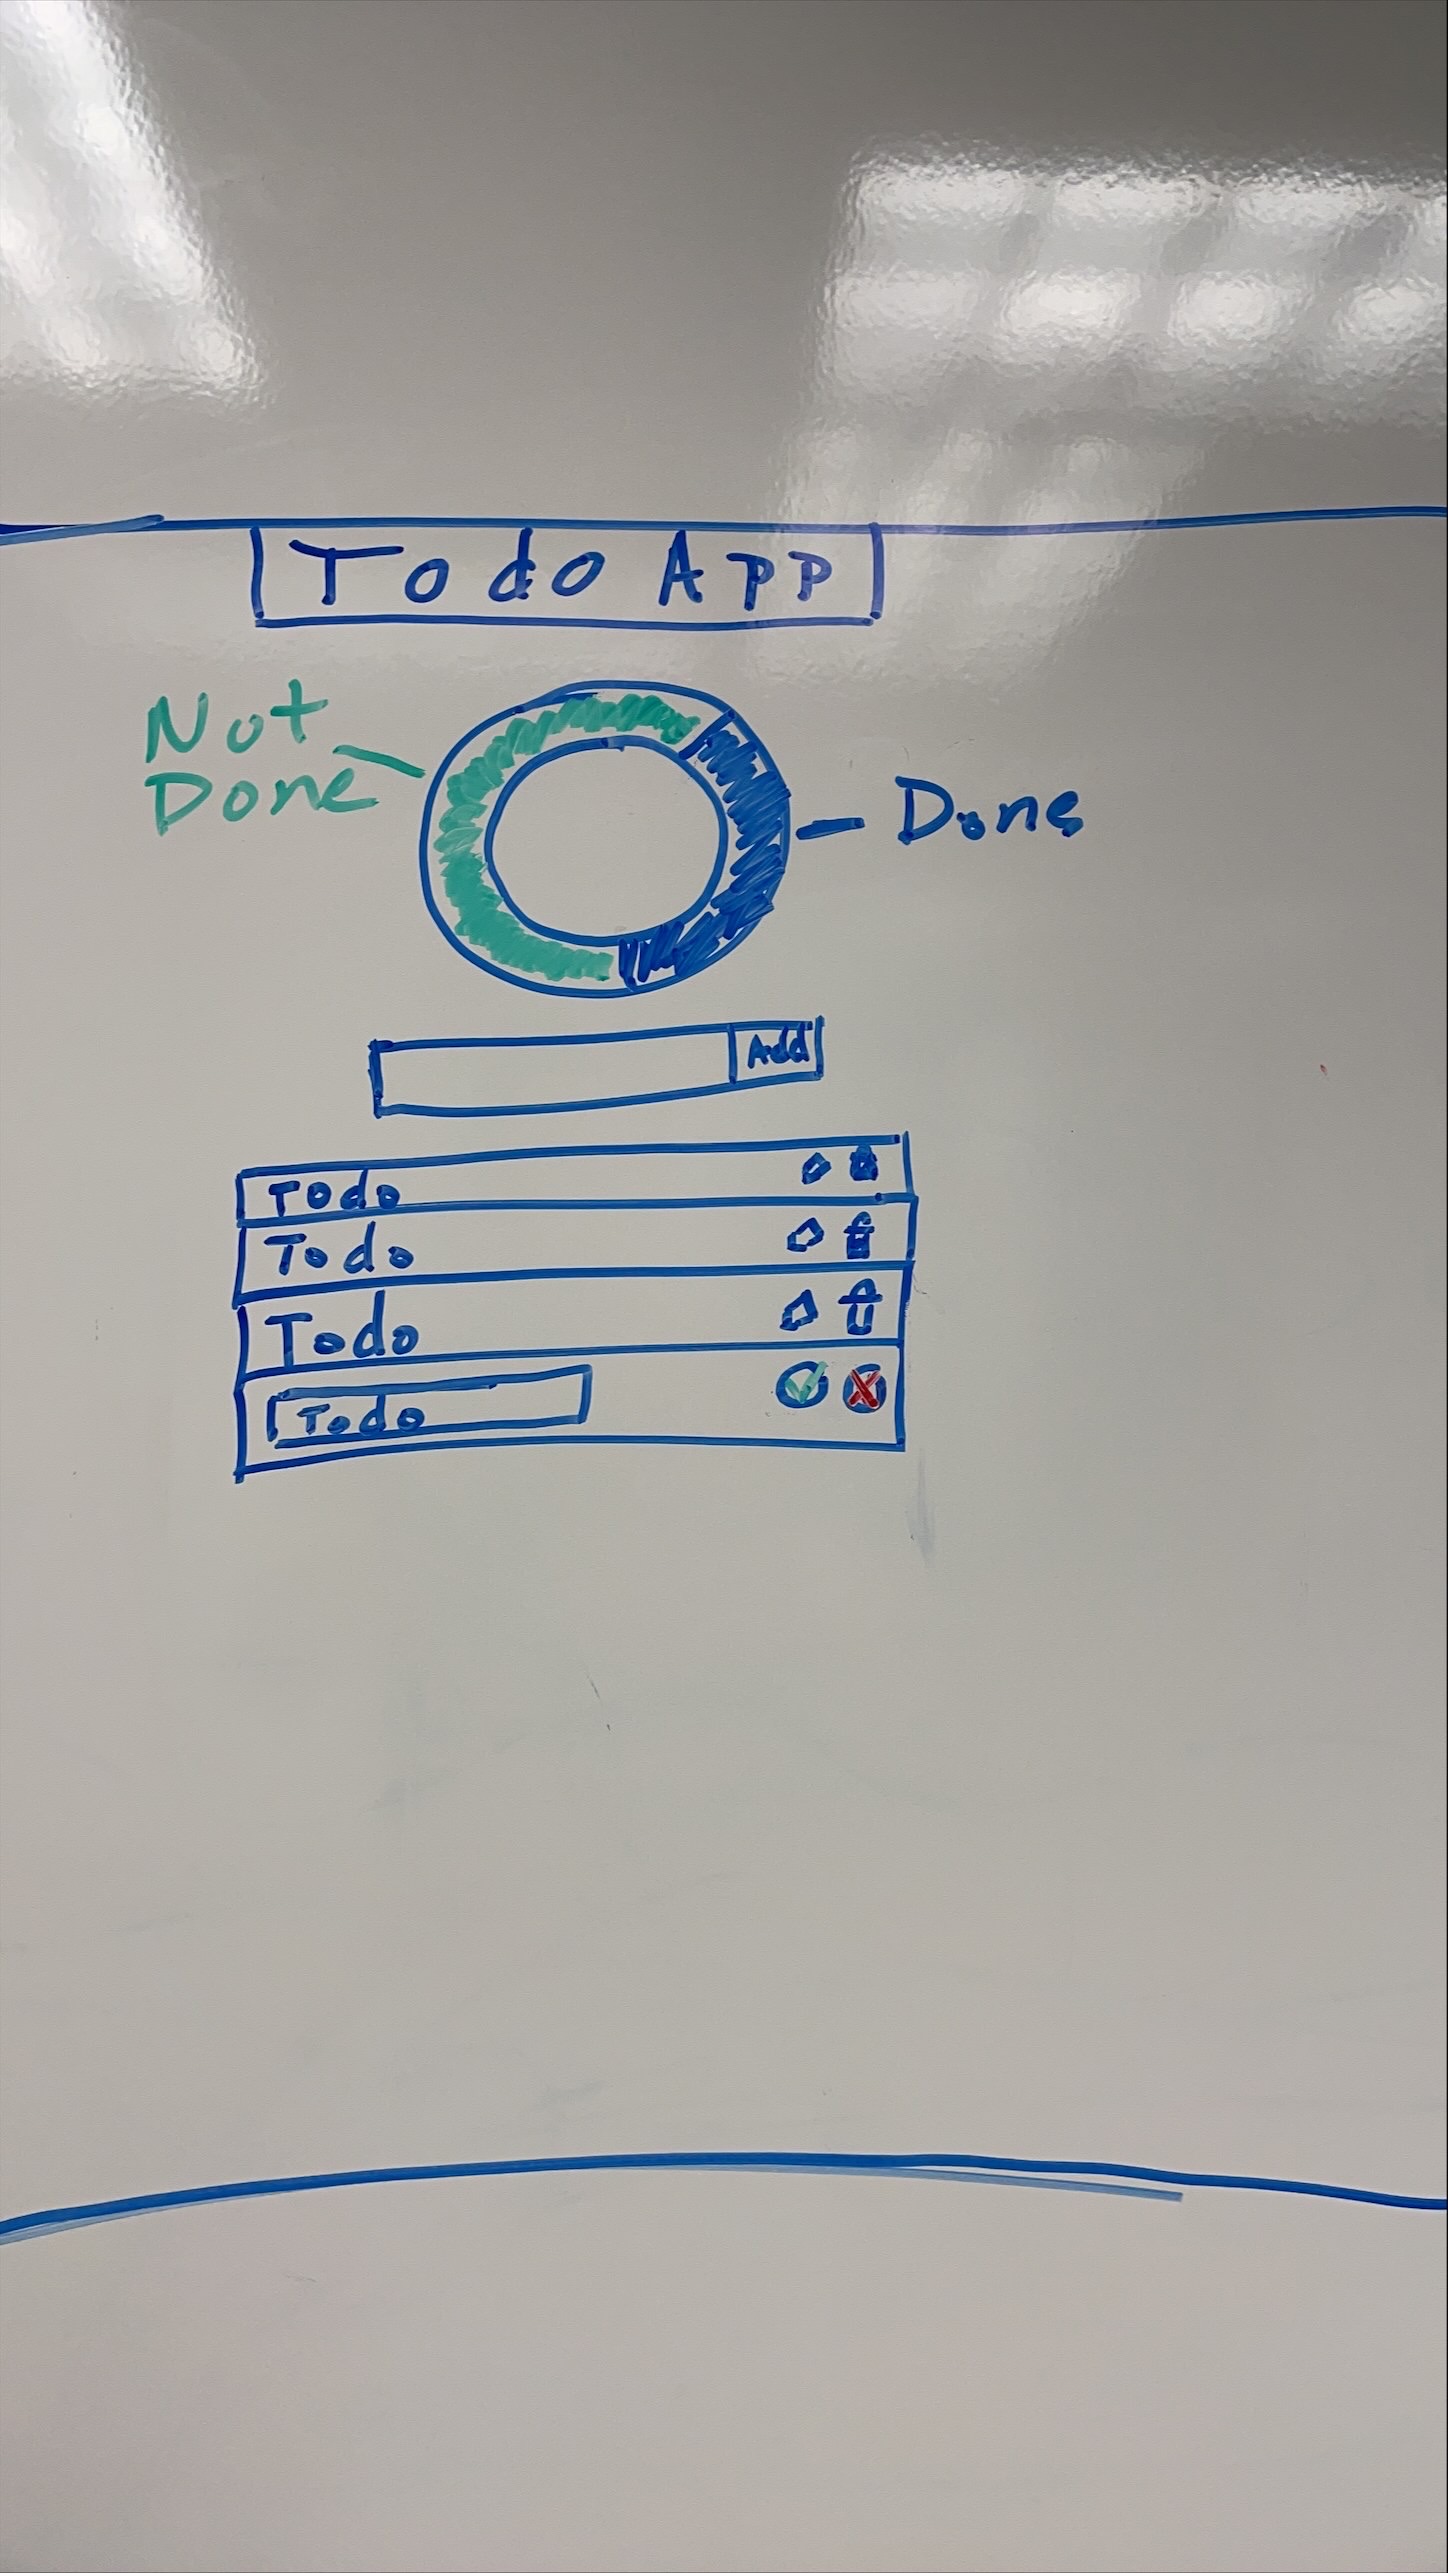 Todo App
Not
Done
Done
Add
Todo
Todo
Todo
Todo